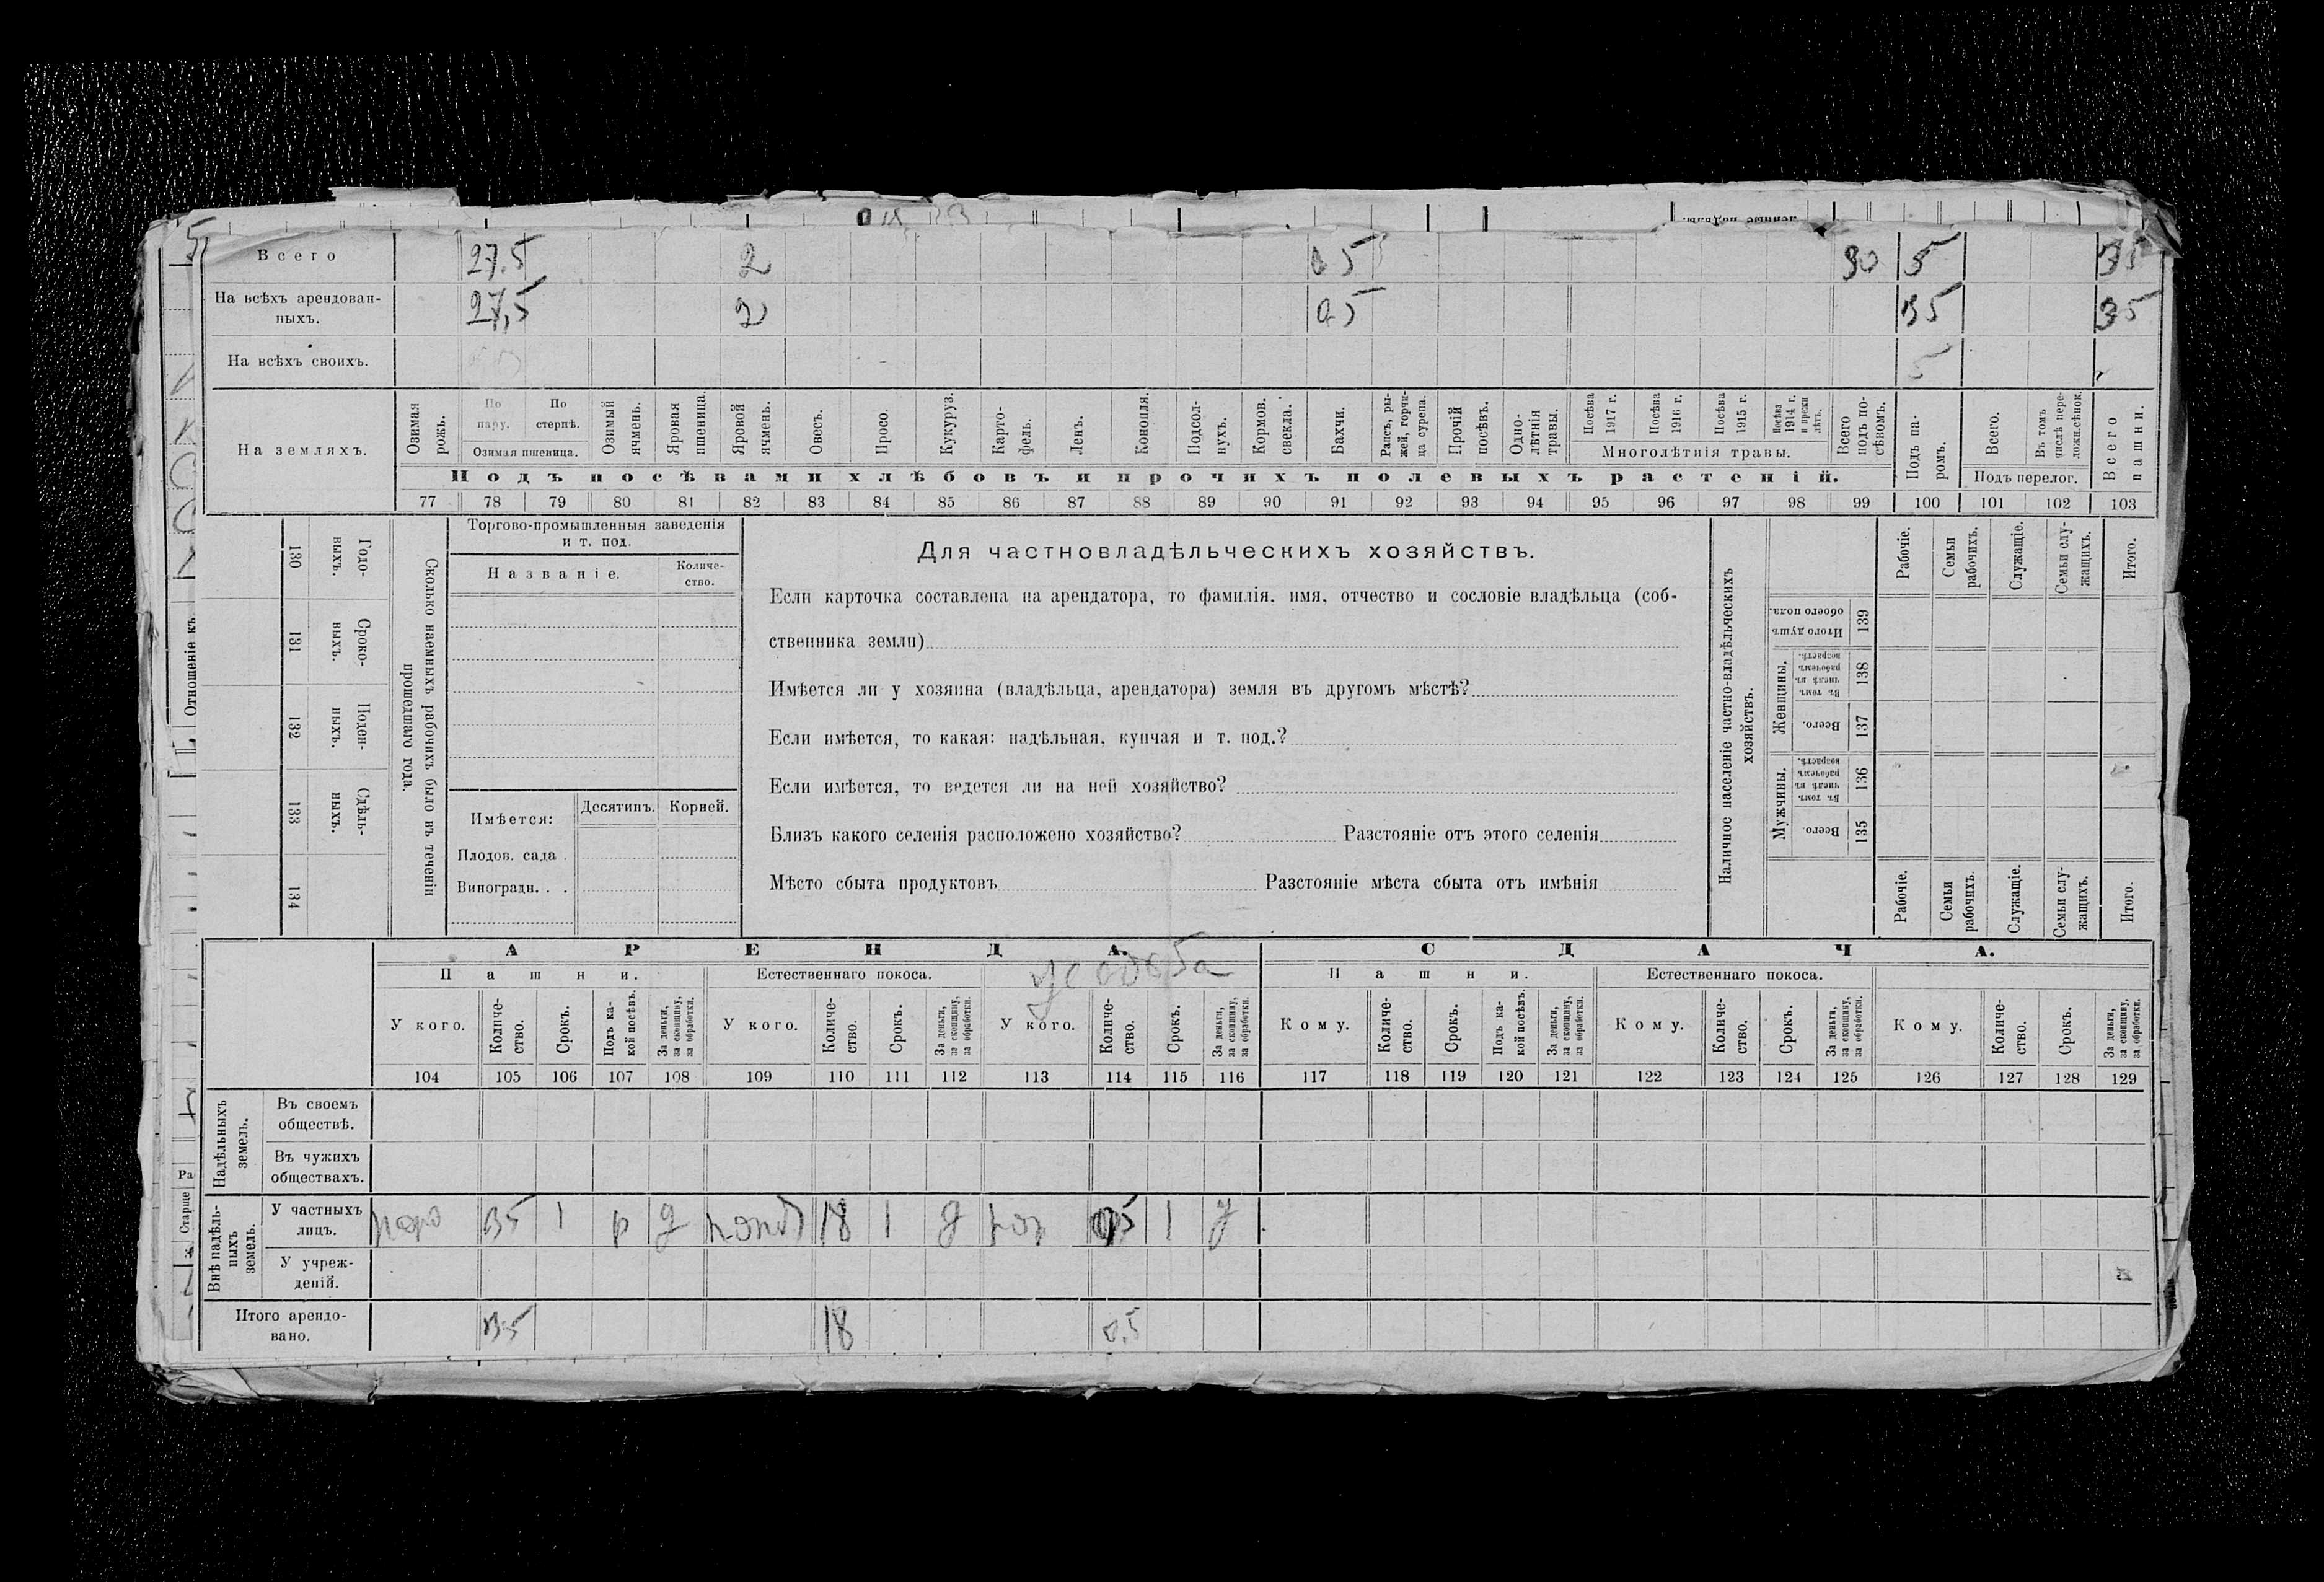 Всего 27.5 2 0 5 30 5 35
На всѣхъ арендован-
ныхъ. 27,5 2 0.5 35 35
На всѣхъ своихъ.
На земляхъ.
Озимая рожь.
По пару.
По стерпѣ.
Озимая пшеница.
Озимый ячмень.
Яровая пшеница.
Яровой ячмень.
Овесъ.
Просо.
Кукуруз.
Карто-
фель.
Ленъ.
Конопля.
Подсол-
нухъ.
Кормов. свекла.
Бахчи.
Рапсъ, ры-
жей, горчи-
ца сурепа.
Прочій посѣвъ.
Одно-
лѣтнія травы.
Посѣва 1917 г.
Посѣва 1916 г.
Посѣва 1915 г.
Посѣва 1914 г. и прежн лѣтъ.
Многолѣтнія травы.
Всего подъ по-
сѣвомъ.
Подъ па-
ромъ.
Всего.
Въ томъ числѣ пере-
ложн.сѣнок.
Подъ перелог.
Всего пашни.
Подъ посѣвами хлѣбовъ и прочихъ полевыхъ растеній.
77 78 79 80 81 82 83 84 85 86 87 88 89 90 91 92 93 94 95 96 97 98 99 100 101 102 103
Отношеніе къ
Годо-
выхъ.
130
Сроко-
выхъ.
131
Поден-
ныхъ.
132
Сдѣль-
ныхъ.
133
134
Сколько наемныхъ рабочихъ было въ теченіи
прошедшаго года.
Торгово-промышленныя заведенія
и т. под.
Названіе.
Количе-
ство.
Имѣется:
Десятинъ.
Корней.
Плодов. сада .
Виноградн. . .
Для частновладѣльческихъ хозяйствъ.
Если карточка составлена на арендатора, то фамилія, имя, отчество и сословіе владѣльца (соб-
ственника земли)
Имѣется ли у хозяина (владѣльца, арендатора) земля въ другомъ мѣстѣ?
Если имѣется, то какая: надѣльная, купчая и т. под.?
Если имѣется, то ведется ли на ней хозяйство?
Близъ какого селенія расположено хозяйство? Разстояніе отъ этого селенія
Мѣсто сбыта продуктовъ Разстояніе мѣста сбыта отъ имѣнія
Наличное населеніе частно-владѣльческихъ
хозяйствъ.
Рабочіе.
Семьи рабочихъ.
Служащіе.
Семьи слу-
жащихъ.
Итого.
Итого душъ обоего пола.
139
Женщины.
Въ томъ числѣ въ рабочемъ возрастѣ.
138
Всего.
137
Мужчины.
Въ томъ числѣ въ рабочемъ возрастѣ.
136
Всего.
135
Рабочіе.
Семьи рабочихъ.
Служащіе.
Семьи слу-
жащихъ.
Итого.
АРЕНДА. СДАЧА.
Пашни. Естественнаго покоса. усадьба Пашни. Естественнаго покоса.
У кого.
Количе-
ство.
Срокъ.
Подъ ка-
кой посѣвъ.
За деньги,
за скопщину,
за обработки.
У кого.
Количе-
ство.
Срокъ.
За деньги,
за скопщину,
за обработки.
У кого.
Количе-
ство.
Срокъ.
За деньги,
за скопщину,
за обработки.
Кому.
Количе-
ство.
Срокъ.
Подъ ка-
кой посѣвъ.
За деньги,
за скопщину,
за обработки.
Кому.
Количе-
ство.
Срокъ.
За деньги,
за скопщину,
за обработки.
Кому.
Количе-
ство.
Срокъ.
За деньги,
за скопщину,
за обработки.
104 105 106 107 108 109 110 111 112 113 114 115 116 117 118 119 120 121 122 123 124 125 126 127 128 129
Надѣльныхъ
земель.
Въ своемъ
обществѣ.
Въ чужихъ
обществахъ.
Ра
Старше
Внѣ надѣль-
ныхъ
земель.
У частныхъ
лицъ. 35 1 р д 18 1 д 0,5 1 д
У учреж-
деній.
Итого арендо-
вано. 35 18 0.5